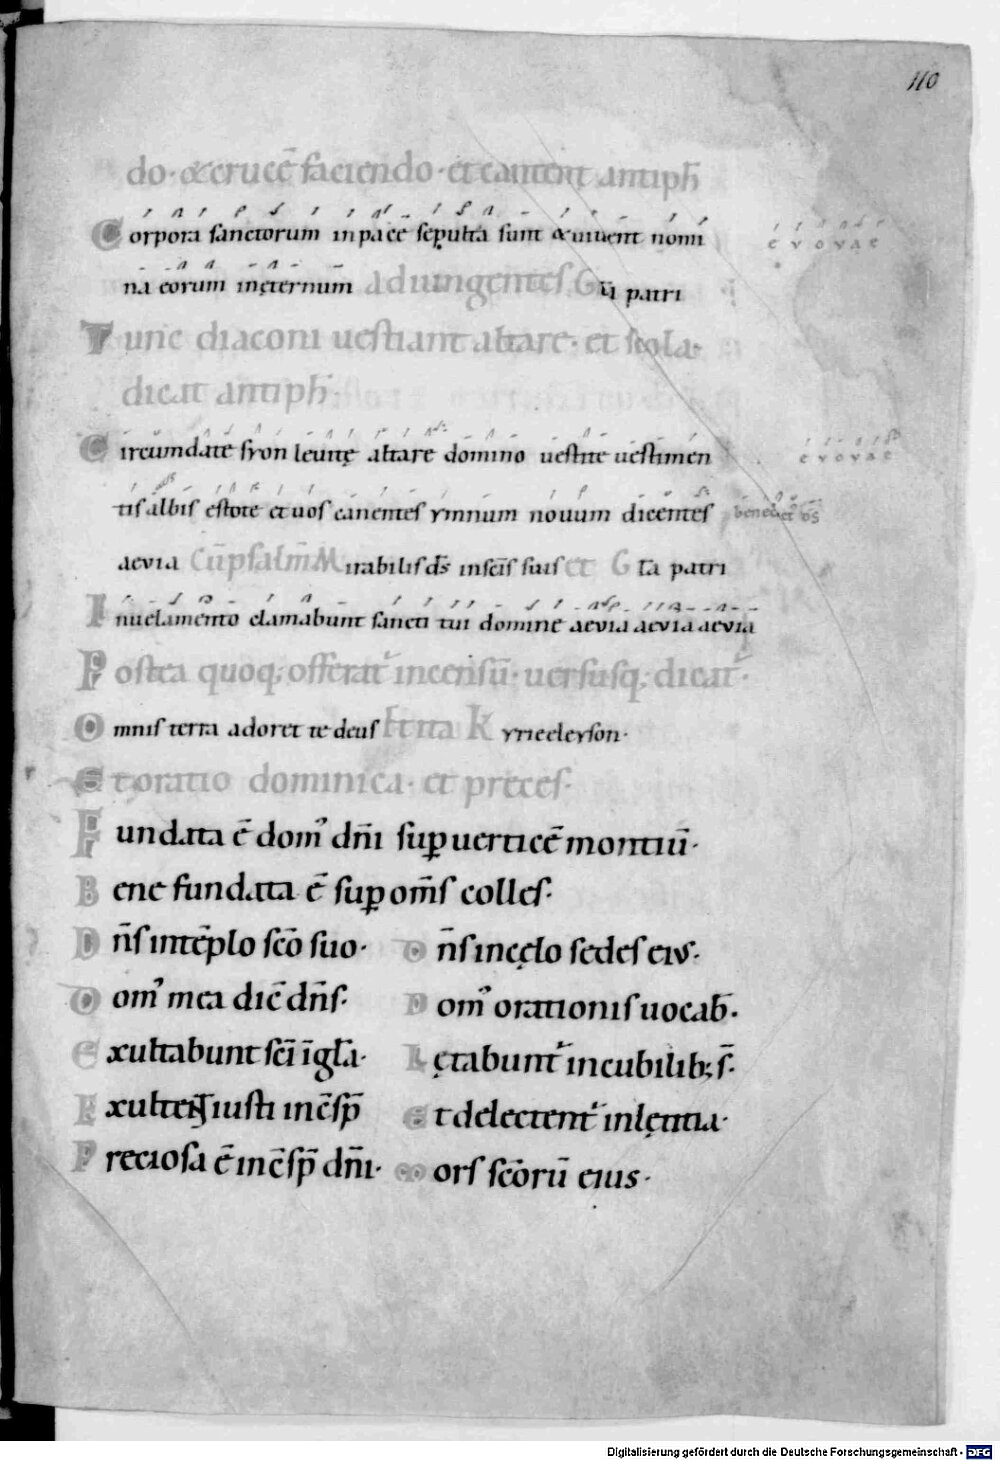 110
do· & crucē faciendo· et cantent antiph̄
Corpora sanctorum in pace sepulta sunt & uiuent nomi e v o v a e
na eorum in ęternum adiungentes. Gła patri
Tunc diaconi uestiant altare· et scola·
dicat antiph̄·
Circumdate syon leuitę altare domino uestite uestimen e v o v a e
tis albis estote et uos canentes ymnum nouum dicentes
aevia Cū psalm̄ Mirabilis d̄s in sc̄is suis et Gła patri
In uelamento clamabunt sancti tui domine aevia aevia aevia
Postea quoq; offerat᷑ incensū· uersusq; dicat᷑·
Omnis terra adoret te deus Kyrieeleyson·
Et oratio dominica· et preces·
Fundata ē domꝰ dn̄i suꝑ uerticē montiū·
Bene fundata ē suꝑ om̄s colles·
Dn̄s in tēplo sc̄o suo· Dn̄s in cęlo sedes eius·
Domꝰ mea dic̄ dn̄s· Domꝰ orationis uocab̄·
Exultabunt sc̄i ī gła· Lętabunt᷑ in cubilib; s̄·
Exultent iusti in c̄sp̄ Et delectent᷑ in lętitia·
Preciosa ē in c̄sp̄ dn̄i· Mors sc̄orū eius·
Digitalisierung gefördert durch die Deutsche Forschungsgemeinschaft - DFG